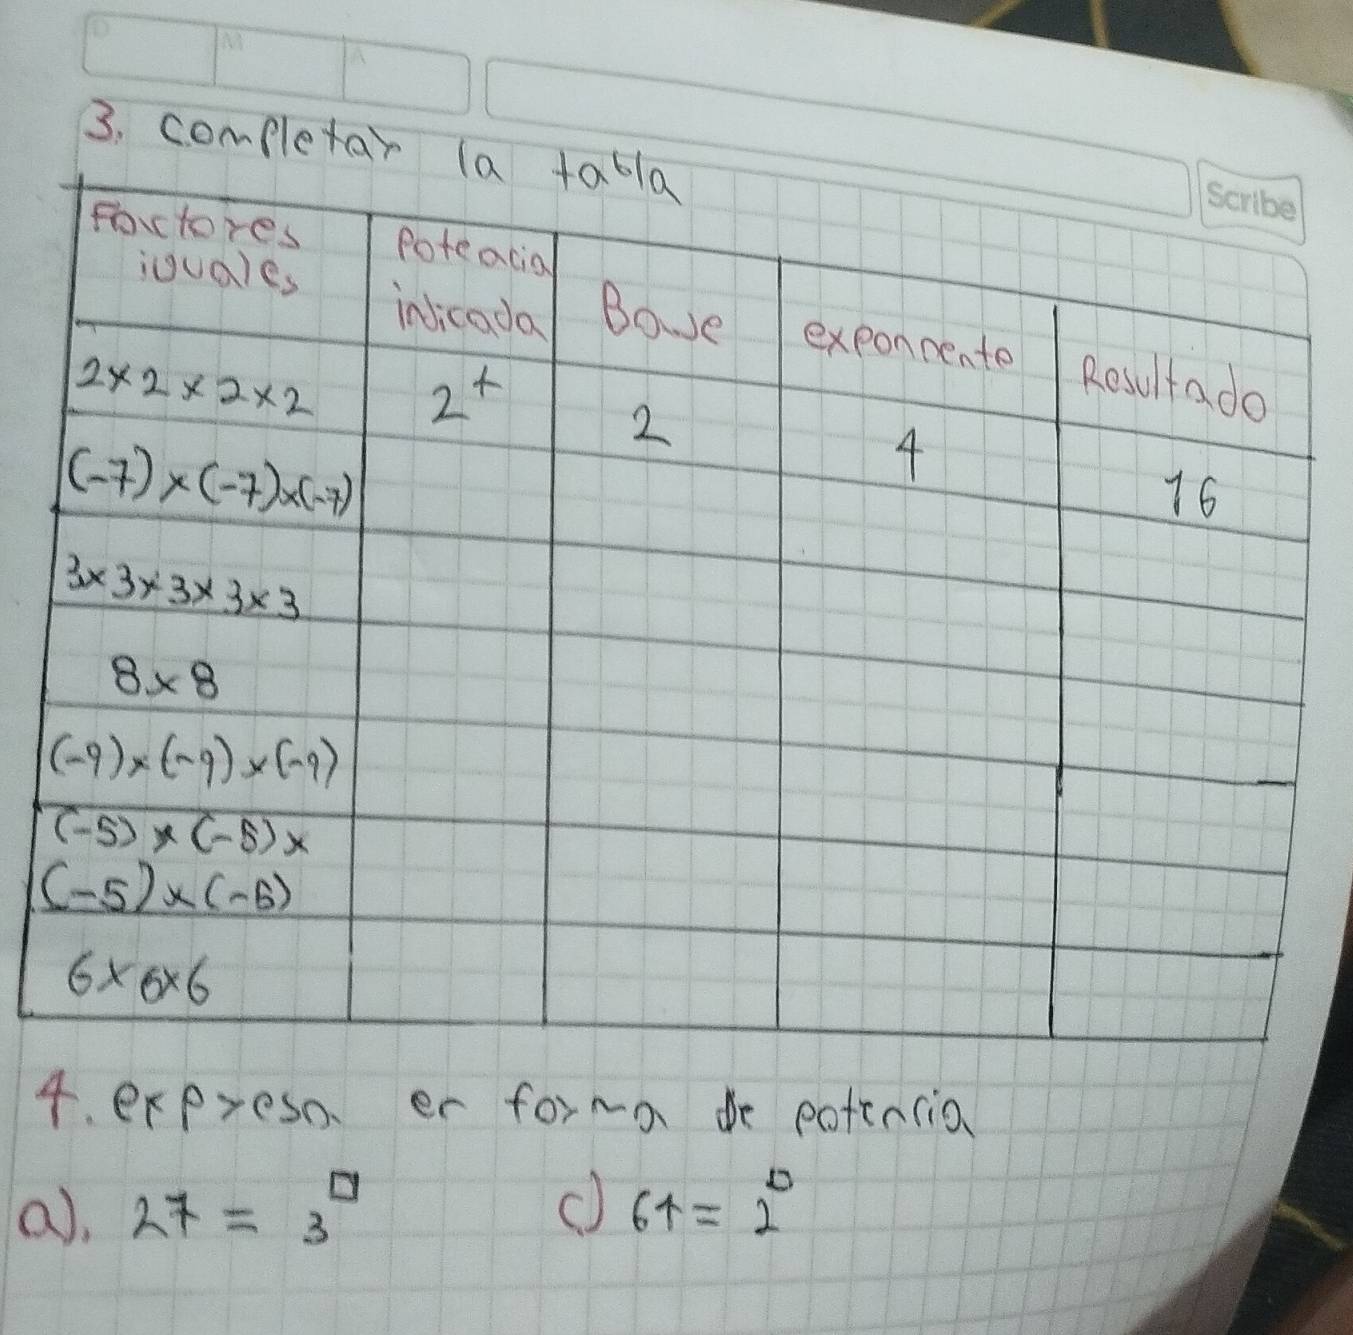 D M A
Scribe
3. completar la tabla
Factores iguales
Potencia indicada
Base
exponente
Resultado
2×2×2×2
2⁴
2
4
16
(-7)×(-7)×(-7)
3×3×3×3×3
8×8
(-9)×(-9)×(-9)
(-5)×(-5)×
(-5)×(-5)
6×6×6
4. expresa en forma de potencia
a). 27 = 3^□
c) 64 = 2^□